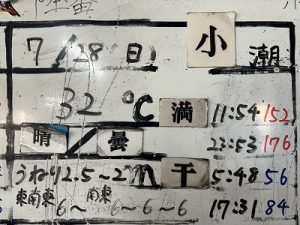 7/28(日) 小潮
32℃ 満 11:54 152
晴/曇 23:53 176
うねり2.5～2m 干 5:48 56
東南東 6～ 南東 6～6～6 17:31 84